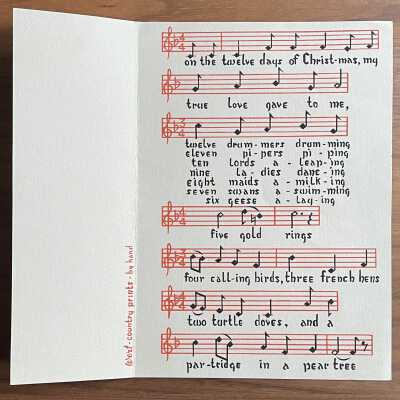 on the twelve days of Christ-mas, my
true love gave to me,
twelve drum-mers drum-ming
eleven pi-pers pi-ping
ten lords a-leap-ing
nine la-dies danc-ing
eight maids a-milk-ing
seven swans a-swim-ming
six geese a-lay-ing
five gold rings
four call-ing birds, three french hens
two turtle doves, and a
par-tridge in a pear tree
country prints - by hand